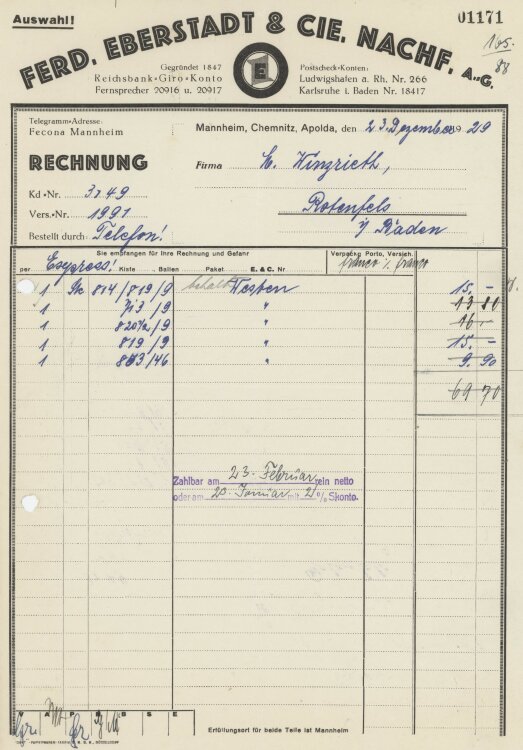 Auswahl!
01171
165.
88
FERD. EBERSTADT & CIE. NACHF. A.-G.
Gegründet 1847
Reichsbank-Giro-Konto
Fernsprecher 20916 u. 20917
E
Postscheck-Konten:
Ludwigshafen a. Rh. Nr. 266
Karlsruhe i. Baden Nr. 18417
Telegramm-Adresse:
Fecona Mannheim
Mannheim, Chemnitz, Apolda, den 23. Dezember 1929
RECHNUNG
Firma
Kd.-Nr. 3749
Rotenfels
Vers.-Nr. 1991
i/ Baden
Bestellt durch: Telefon!
Sie empfangen für Ihre Rechnung und Gefahr
Verpackg Porto, Versich.
per Express! Kiste Ballen Paket E. & C. Nr
franco
1 Stk 814/819/9 behalt Westen 15.-
1 713/9 " 13 80
1 /9 " 16.-
1 819/9 " 15.-
1 /46 " 9.90
69 70
Zahlbar am 23. Februar rein netto
oder am 23. Januar mit 2% Skonto.
V A P B S E
Erfüllungsort für beide Teile ist Mannheim